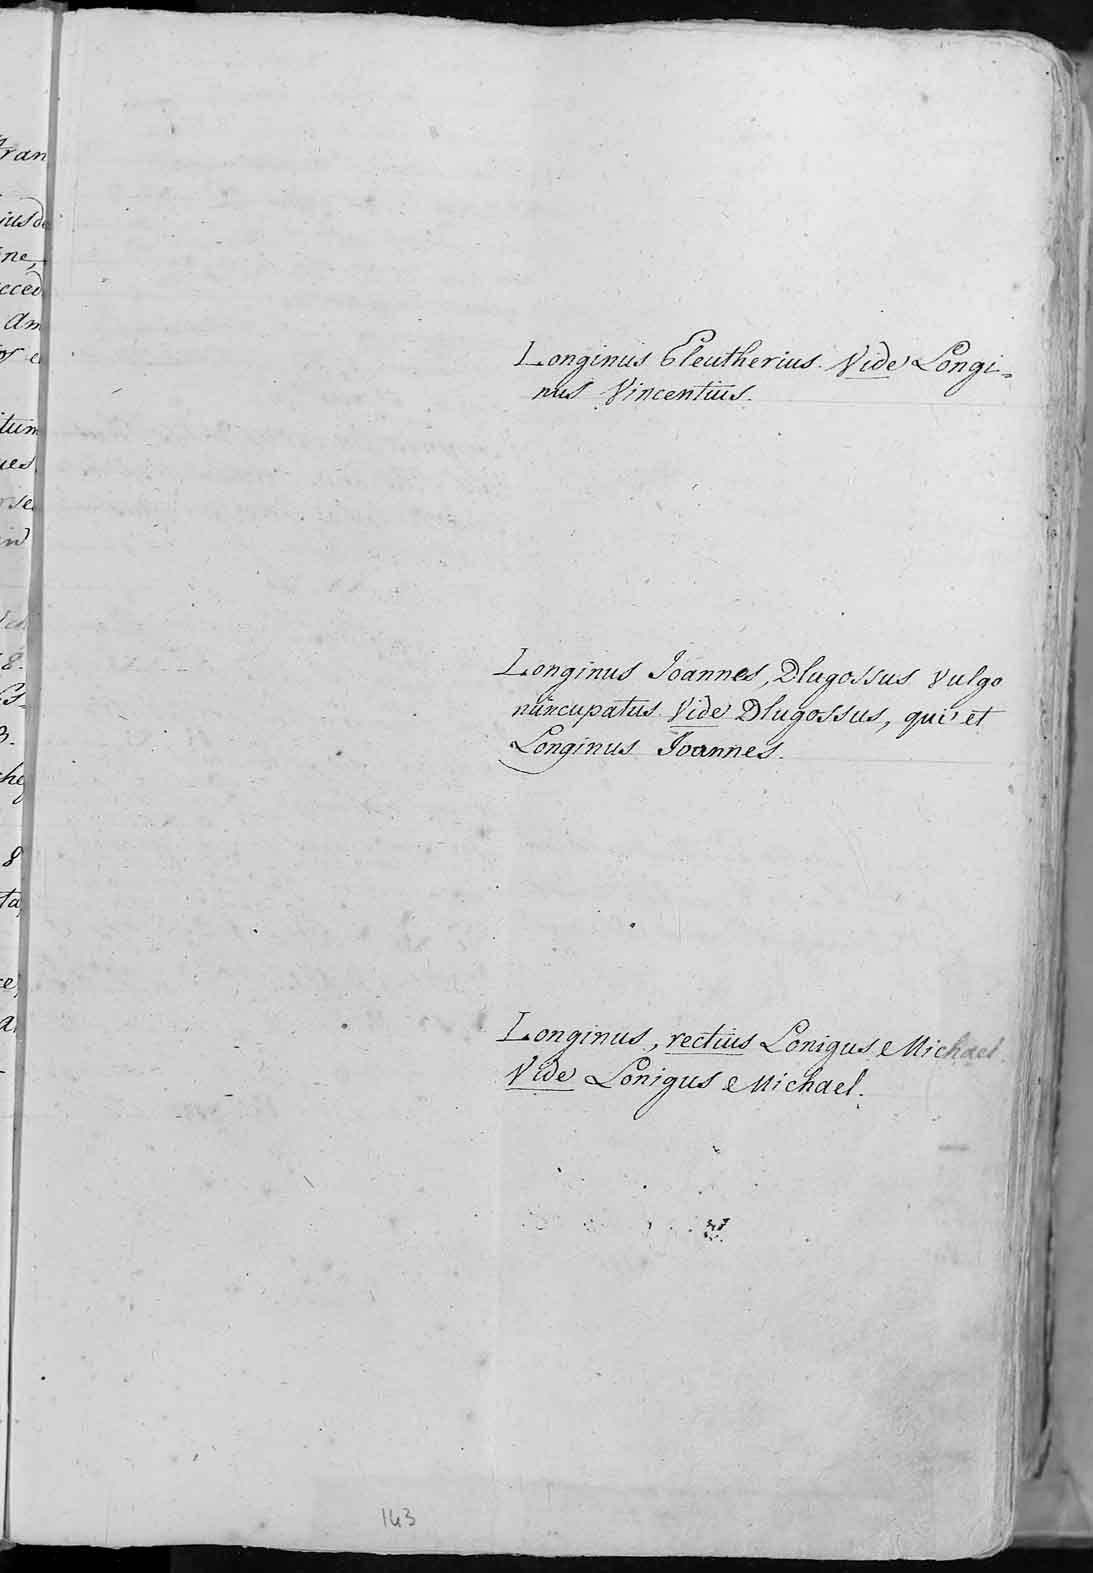 Longinus Eleutherius. Vide Longi=
nus Vincentius.
Longinus Joannes, Dlugossus vulgo
nuncupatus. Vide Dlugossus, qui et
Longinus Joannes.
Longinus, rectius Lonigus Michael
Vide Lonigus Michael.
143